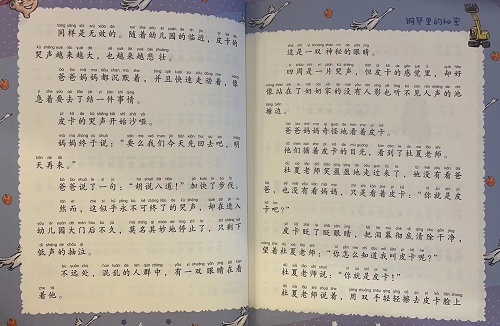 同样是无效的。随着幼儿园的临近，皮卡的
哭声越来越大，也越来越悲壮。
爸爸妈妈都沉默着，并且快速走动着，像
急着要去了结一件事情。
皮卡的哭声开始沙哑。
妈妈终于说：“要么我们今天先回去吧，明
天再来。”
爸爸说了一句：“胡说八道！”加快了步伐。
然而，这似乎永不可终了的哭声，却在进入
幼儿园大门后不久，莫名其妙地停止了，只剩下
低声的抽泣。
不远处，混乱的人群中，有一双眼睛在看
着他。
钢琴里的秘密
这是一双神秘的眼睛。
四周是一片哭声，但皮卡的感觉里，却好
像站在了奶奶家的没有人影也听不见人声的池
塘边。
爸爸妈妈奇怪地看着皮卡。
他们循着皮卡的目光，看到了杜夏老师。
杜夏老师笑盈盈地走过来了，她没有看爸
爸，也没有看妈妈，只是看着皮卡：“你就是皮
卡吧？”
皮卡眨了眨眼睛，把泪幕彻底清除干净，
望着杜夏老师：“你怎么知道我叫皮卡呢？”
杜夏老师说：“你就是皮卡！”
杜夏老师说着，用双手轻轻擦去皮卡脸上